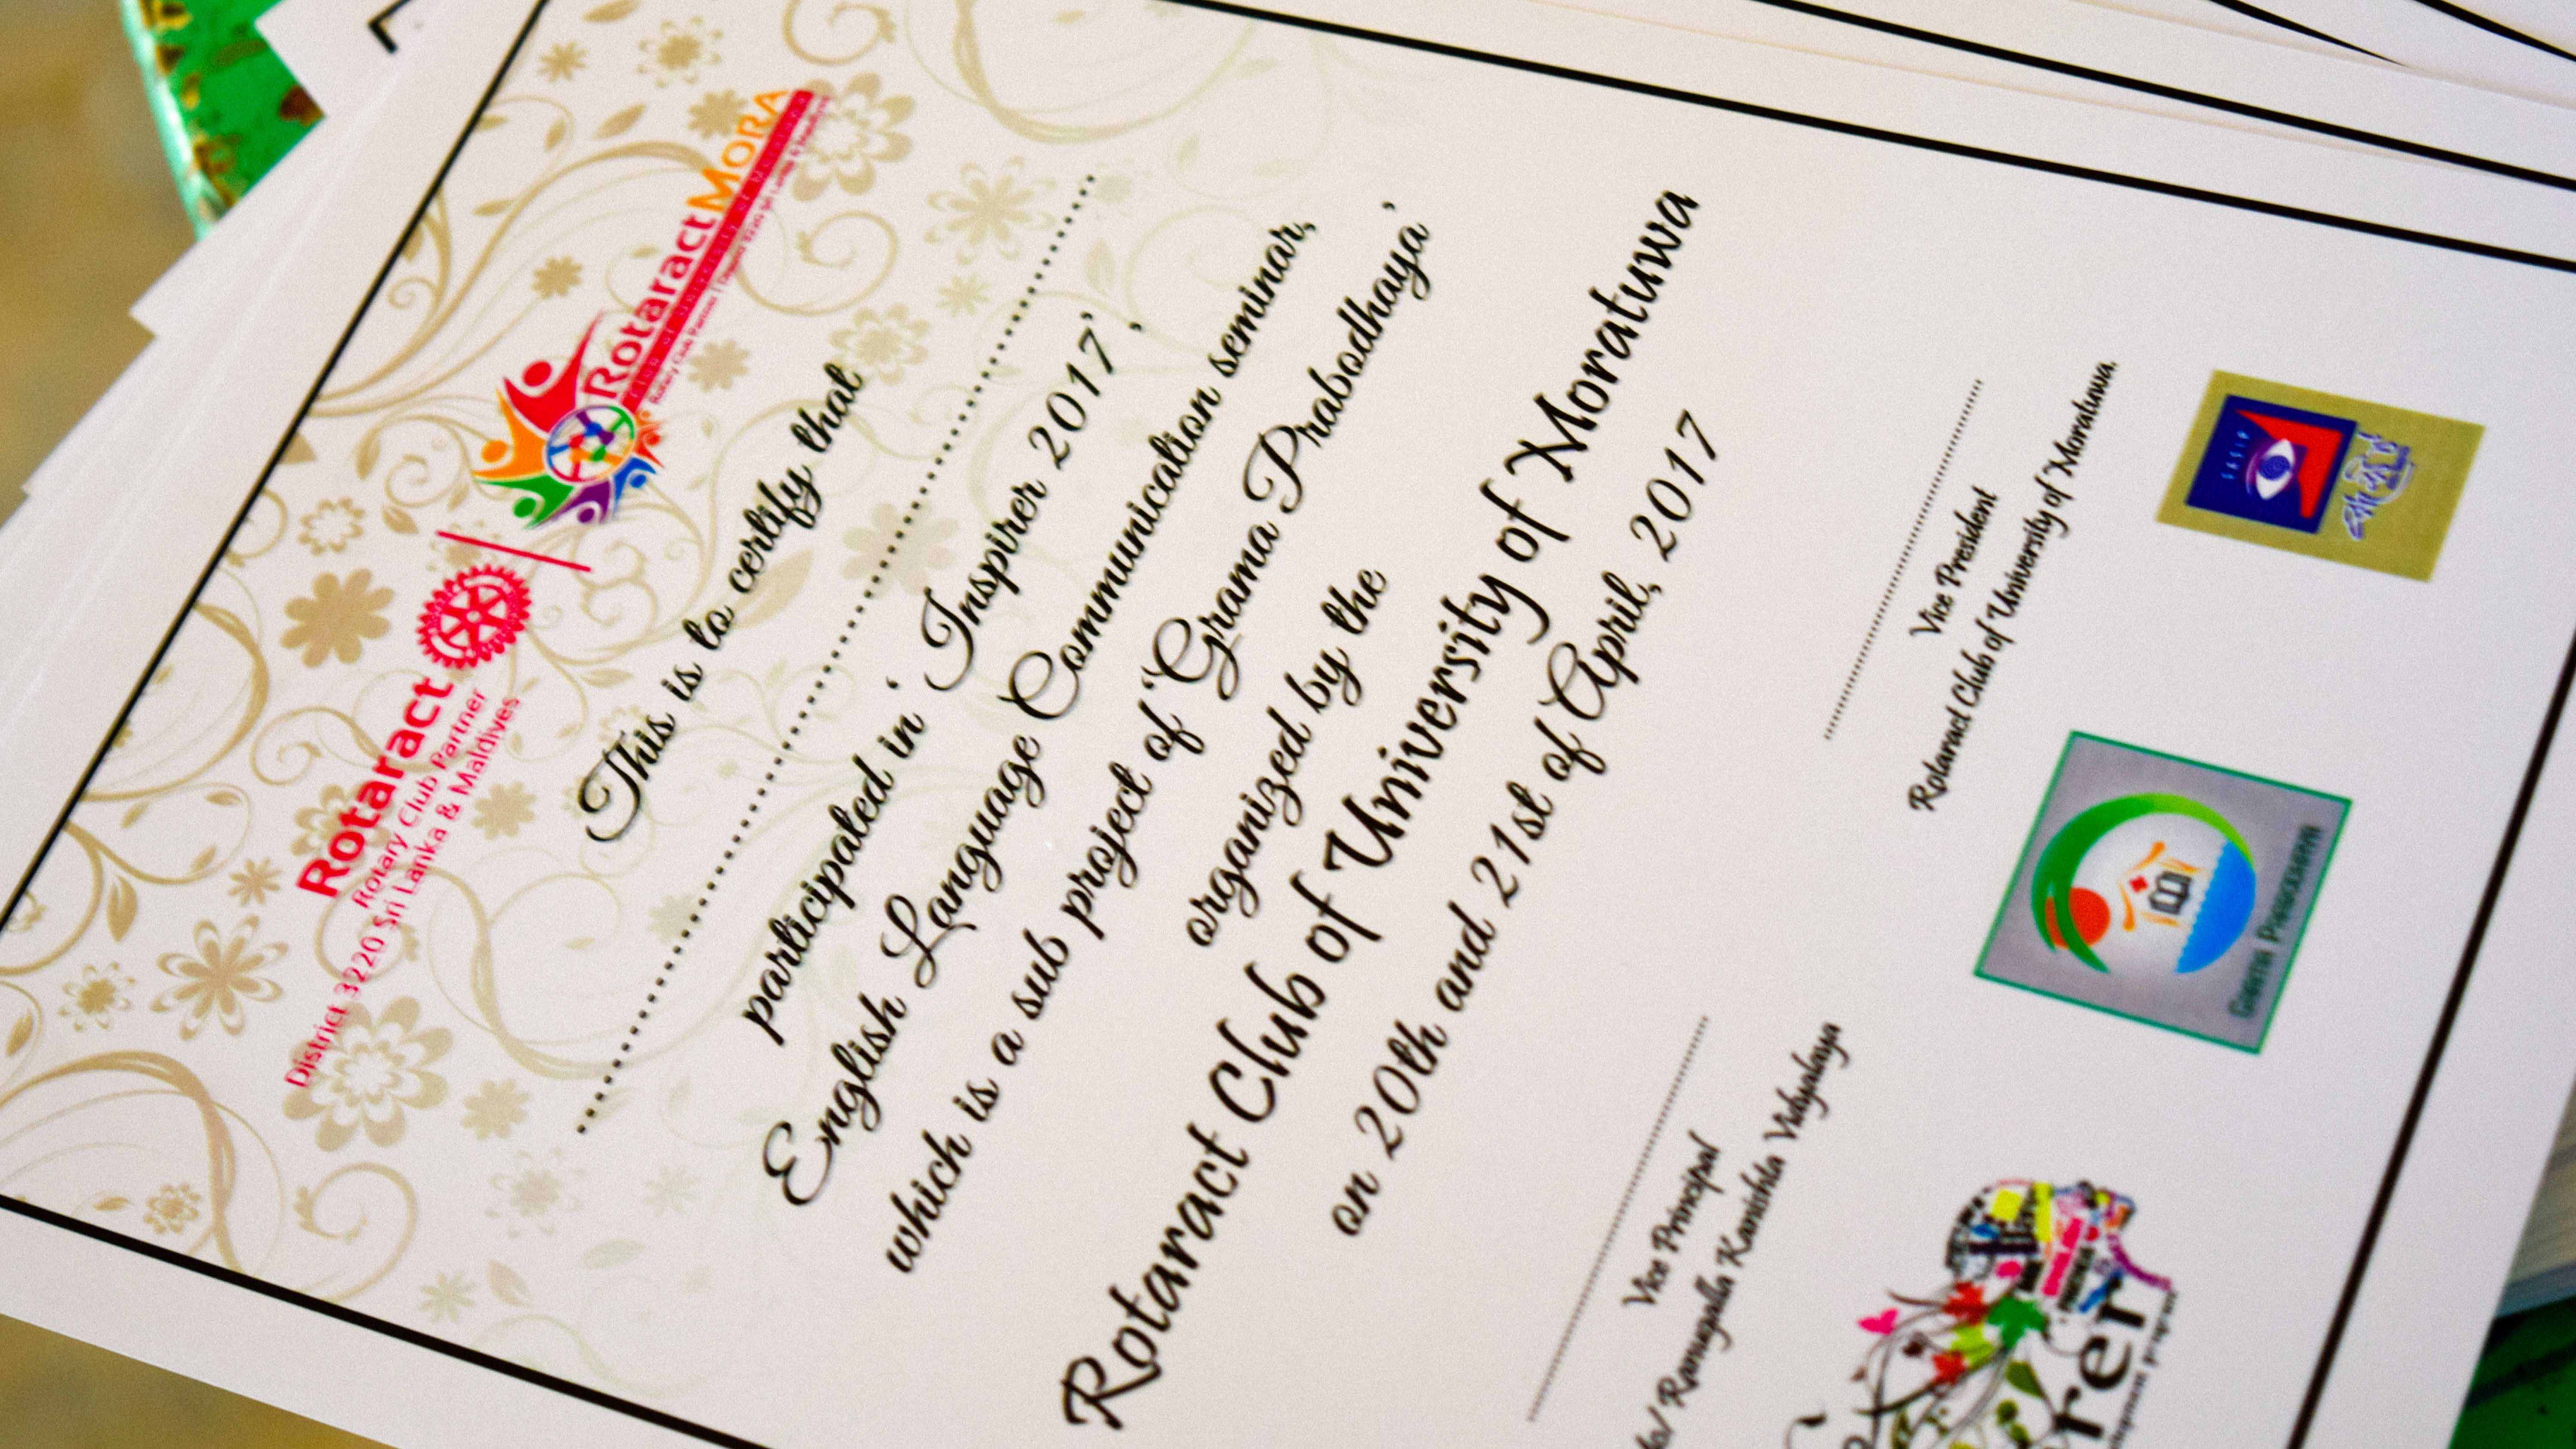 Rotaract
Rotary Club Partner
District 3220 Sri Lanka & Maldives
RotaractMORA
This is to certify that
participated in ' Inspirer 2017' ,
English Language Communication seminar,
which is a sub project of 'Grama Prabodhaya'
organized by the
Rotaract Club of University of Moratuwa
on 20th and 21st of April, 2017
Vice Principal
Ranugalla Kanishta Vidyalaya
Vice President
Rotaract Club of University of Moratuwa.
rer